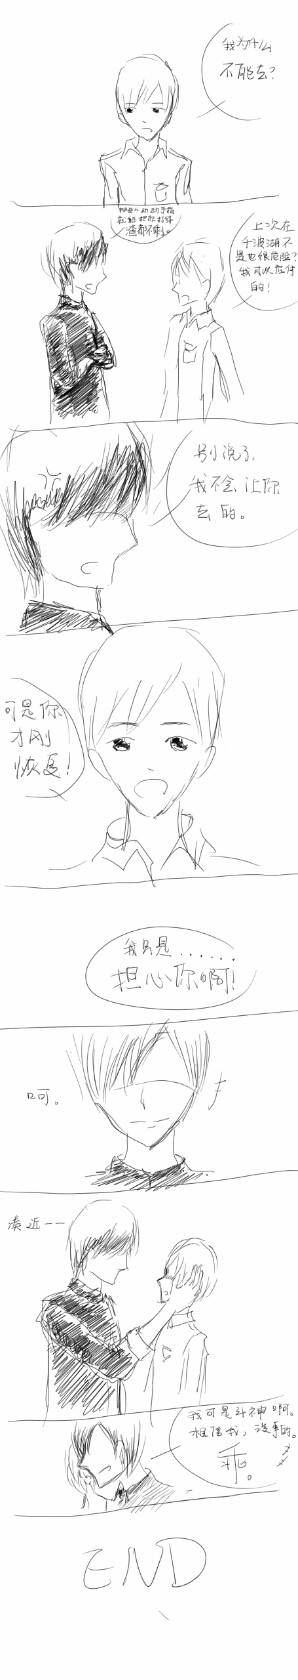 我为什么
不能去?
渣都不剩。
上次在
千波湖不
是也很危险?
我可以应付
的!
别说了,
我不会让你
去的。
可是你
才刚
恢复!
我只是......
担心你啊!
呵。
凑近--
我可是斗神啊。
相信我,没事的。
乖。
END